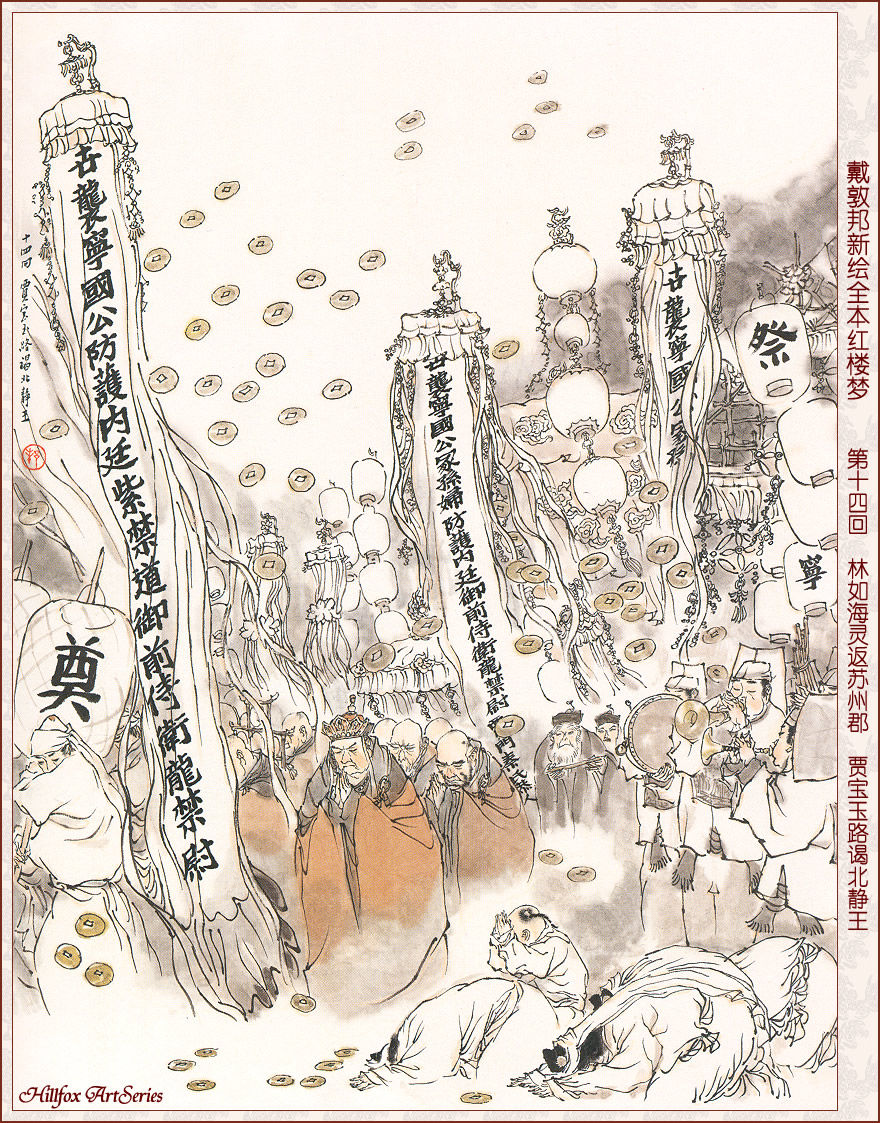 戴敦邦新绘全本红楼梦 第十四回 林如海灵返苏州郡 贾宝玉路谒北静王
祭
寧
世襲寧國公冢孫
世襲寧國公冢孫婦防護內廷御前侍衛龍禁尉
世襲寧國公防護内廷紫禁道御前侍衛龍禁尉
十四回 賈寶玉路谒北静王
奠
Hillfox ArtSeries